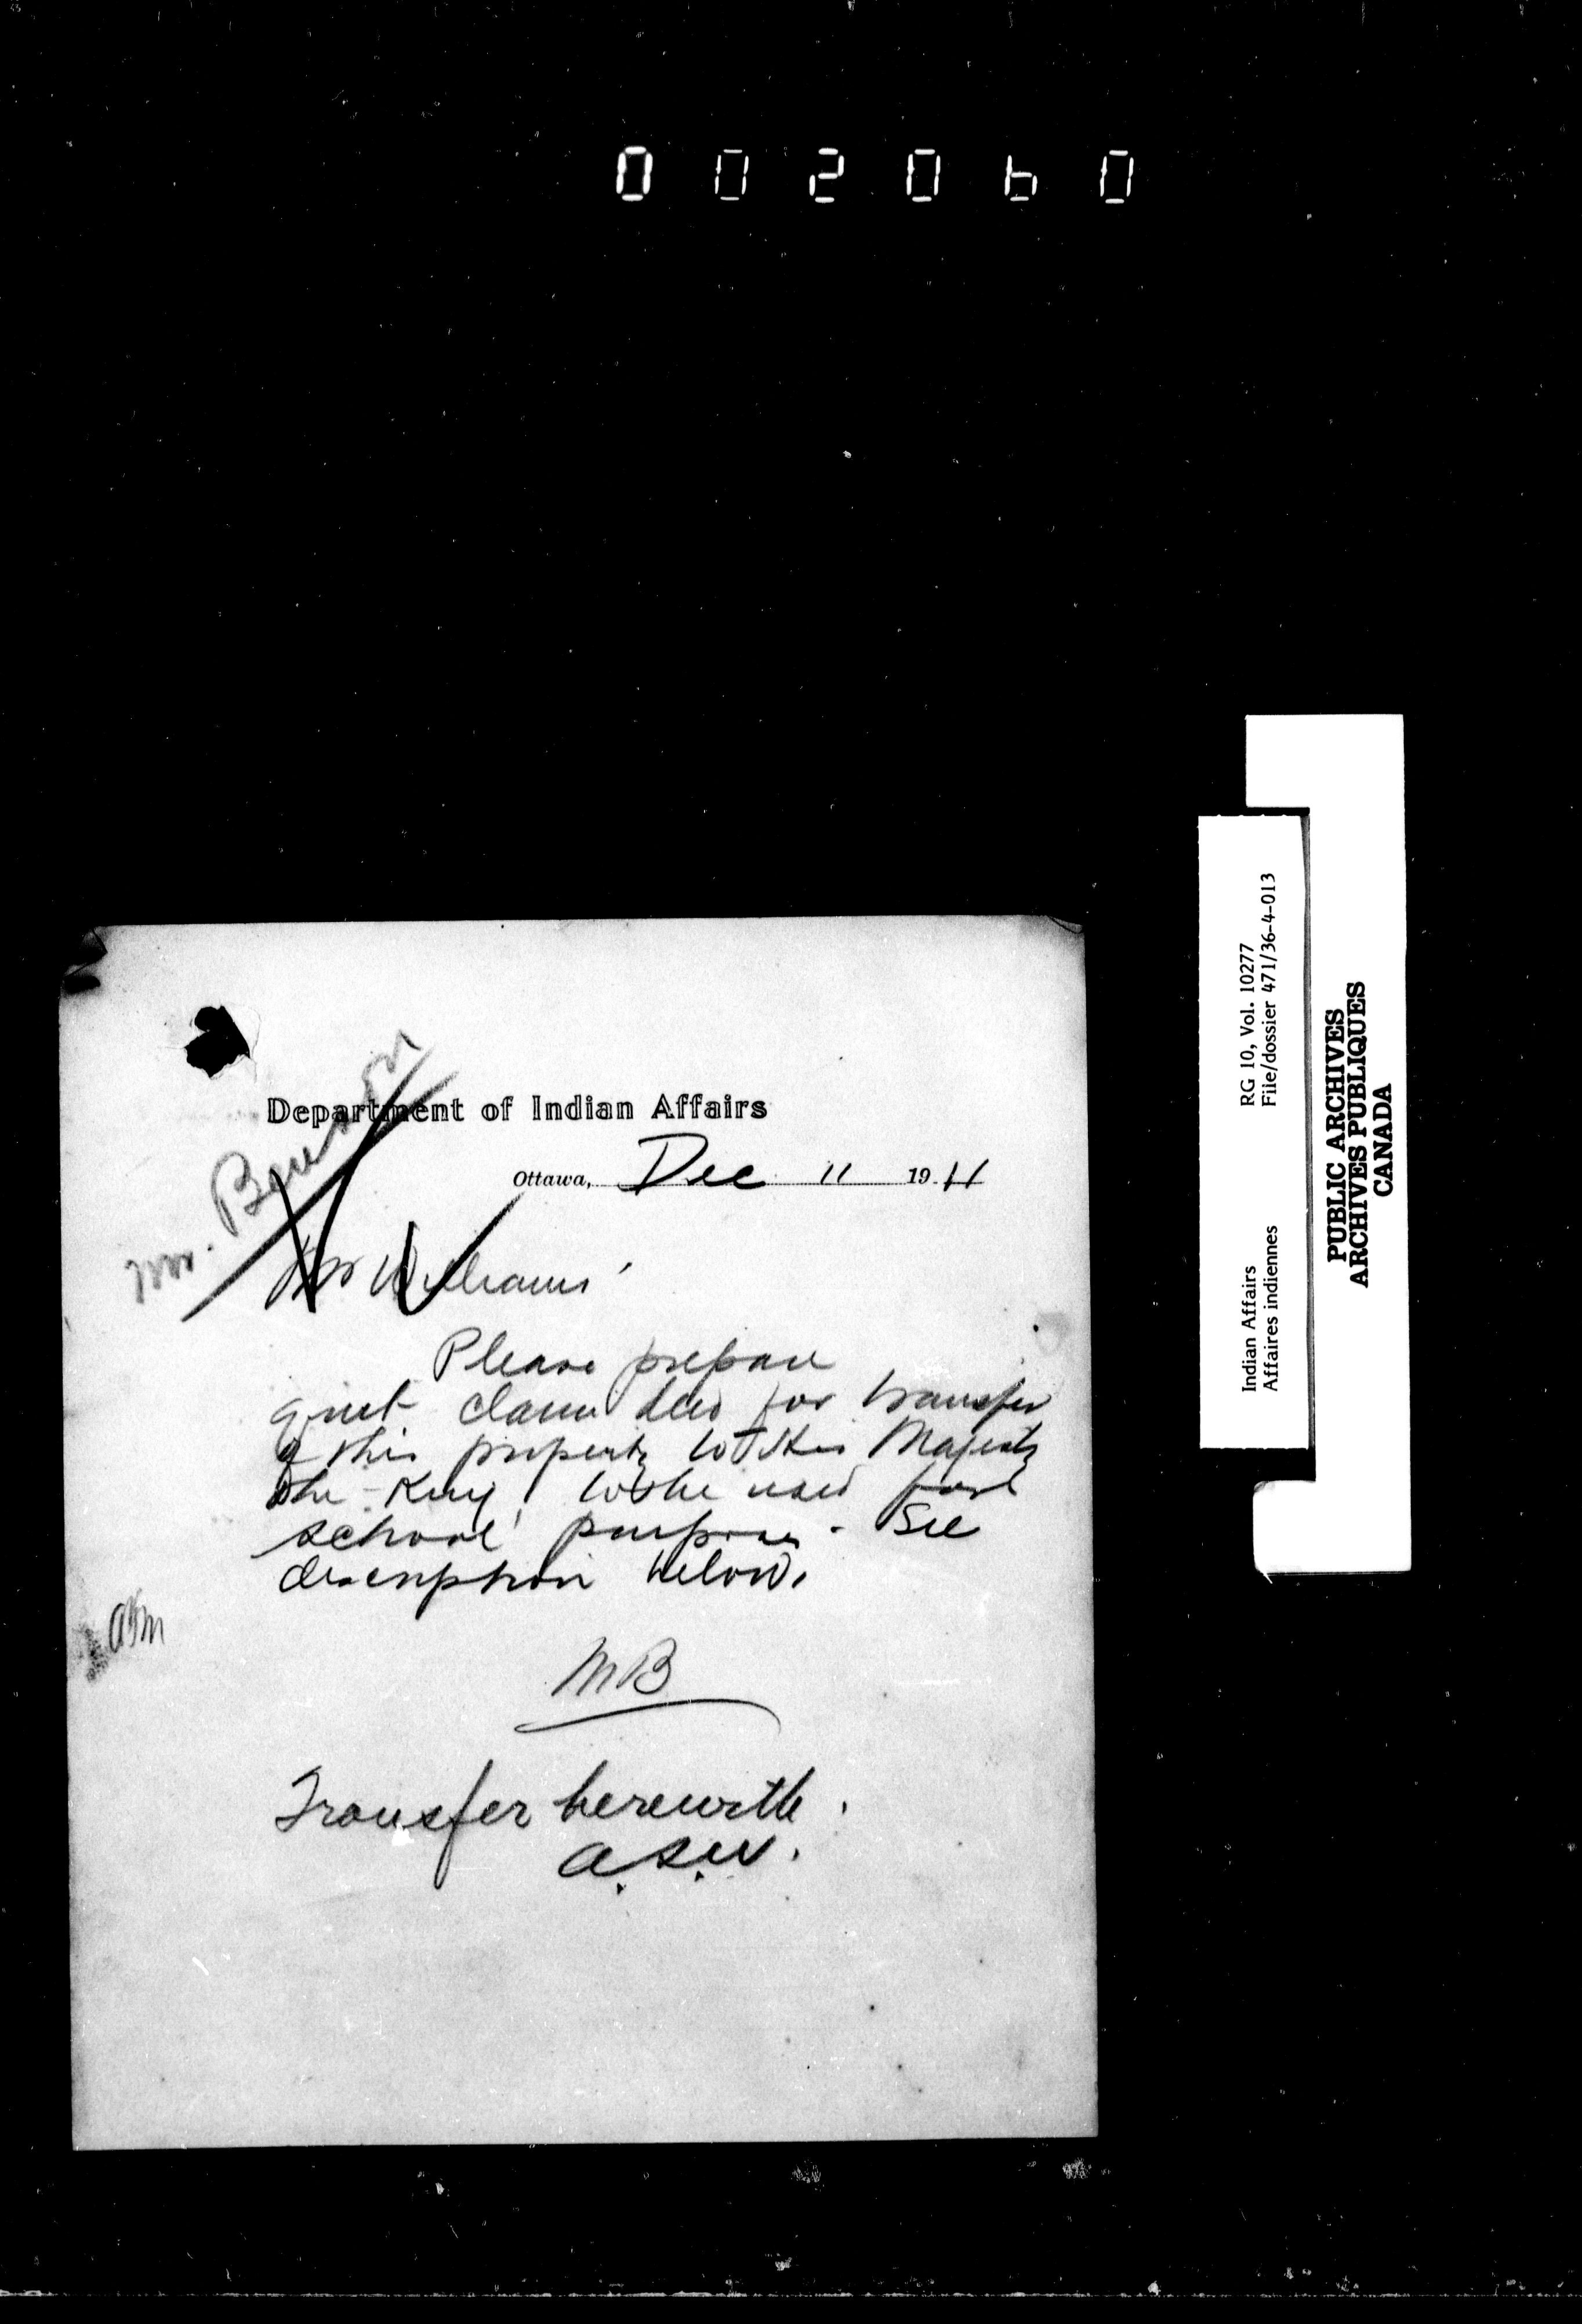 002060
Department of Indian Affairs
Ottawa, Dec 11 1911
Mr. Benson
Mr Williams
Please prepare
quit claim deed for transfer
of this property to His Majesty
the King to be used for
school purposes. See
description below.
MB
Transfer herewith.
A.S.W.
Indian Affairs RG 10, Vol. 10277
Affaires indiennes File/dossier 471/36-4-013
PUBLIC ARCHIVES
ARCHIVES PUBLIQUES
CANADA